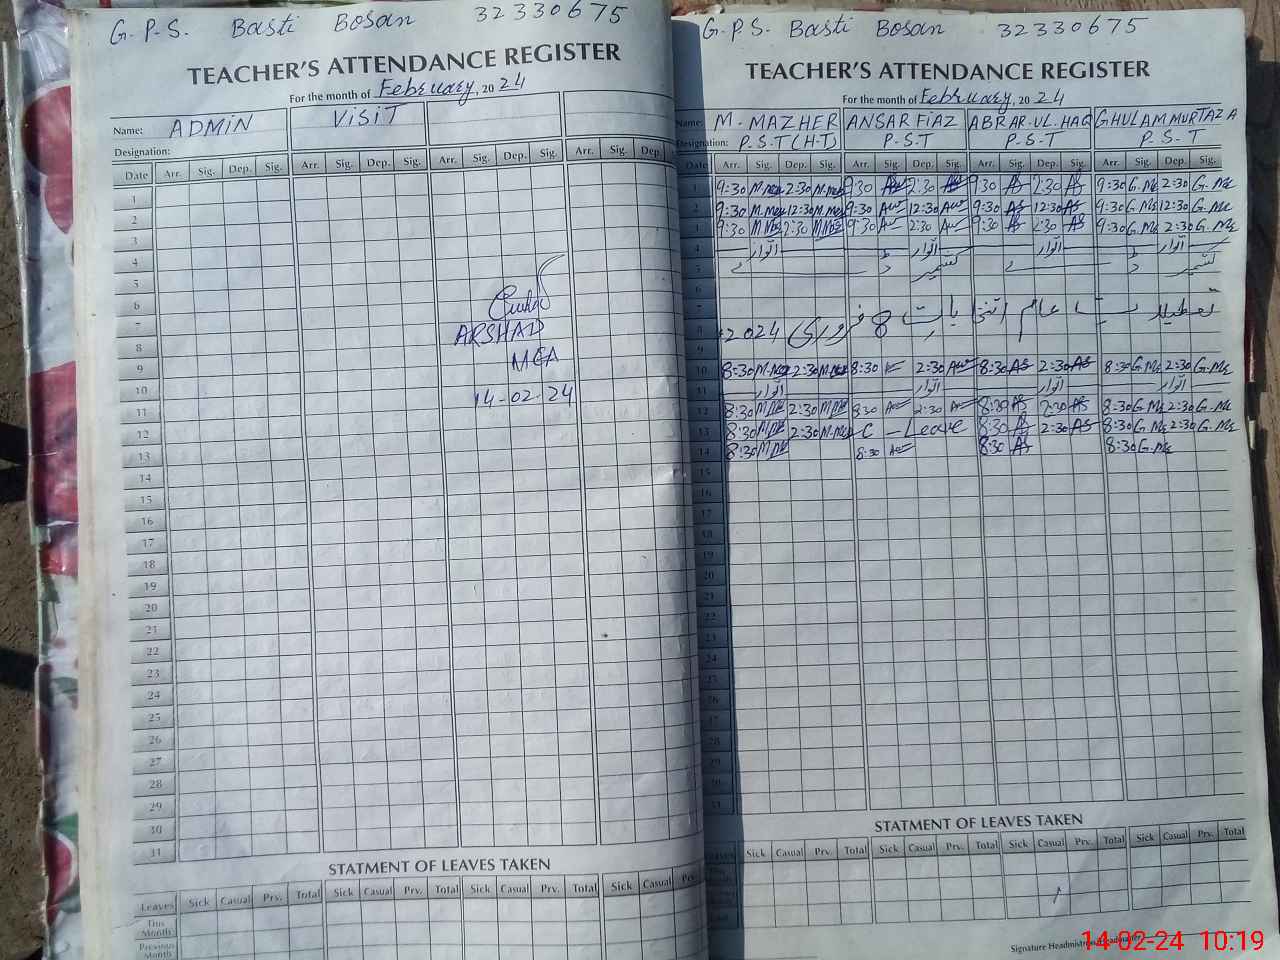 G.P.S. Basti Bosan 32330675
TEACHER'S ATTENDANCE REGISTER
For the month of February, 2024
Name: ADMIN VISIT
Designation:
Date Arr. Sig. Dep. Sig. Arr. Sig. Dep. Sig. Arr. Sig. Dep. Sig. Arr. Sig. Dep.
1
2
3
4
5
6
7
8
9
10
11
12
13
14
15
16
17
18
19
20
21
22
23
24
25
26
27
28
29
30
31
ARSHAD
MEA
14-02-24
STATMENT OF LEAVES TAKEN
Leaves Sick Casual Prv. Total Sick Casual Prv. Total Sick Casual Prv.
This Month
Previous Month
G.P.S. Basti Bosan 32330675
TEACHER'S ATTENDANCE REGISTER
For the month of February, 2024
Name: M. MAZHER ANSAR FIAZ ABRAR-UL-HAQ GHULAM MURTAZA
Designation: P.S.T (H.T) P.S.T P.S.T P.S.T
Date Arr. Sig. Dep. Sig. Arr. Sig. Dep. Sig. Arr. Sig. Dep. Sig. Arr. Sig. Dep. Sig.
1 9:30 2:30 9:30 2:30 9:30 2:30 9:30 G.Ms 2:30 G.Ms
2 9:30 12:30 9:30 12:30 9:30 As 12:30 As 9:30 G.Ms 12:30 G.Ms
3 9:30 2:30 9:30 2:30 9:30 2:30 9:30 G.Ms 2:30 G.Ms
4 اتوار اتوار اتوار اتوار
5 کشمیر ڈے کشمیر ڈے
6
7
8 تعطیلات عام انتخابات 8 فروری 2024
9
10 8:30 2:30 8:30 2:30 8:30 As 2:30 As 8:30 G.Ms 2:30 G.Ms
11 اتوار اتوار اتوار اتوار
12 8:30 2:30 8:30 2:30 8:30 As 2:30 As 8:30 G.Ms 2:30 G.Ms
13 8:30 2:30 C-Leave 8:30 2:30 As 8:30 G.Ms 2:30 G.Ms
14 8:30 8:30 8:30 As 8:30 G.Ms
15
16
17
18
19
20
21
22
23
24
25
26
27
28
29
30
31
STATMENT OF LEAVES TAKEN
Sick Casual Prv. Total Sick Casual Prv. Total Sick Casual Prv. Total Sick Casual Prv. Total
Signature Headmistress/Headmaster
14-02-24 10:19